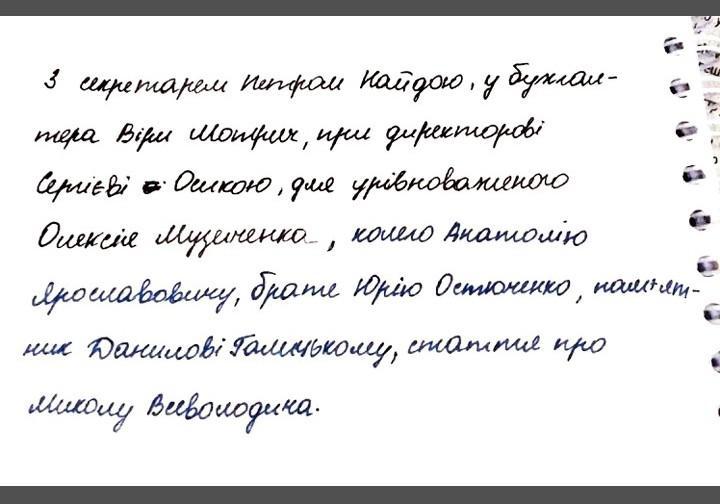 З секретарем Петром Найдою, у бухгал-
тера Віри Мотрич, при директорові
Сергієві Осикою, для урівноваженого
Олексія Музиченка, колего Анатолію
Ярославовичу, брате Юрію Остюченко, пам'ят-
ник Данилові Галицькому, стаття про
Миколу Всеволодича.